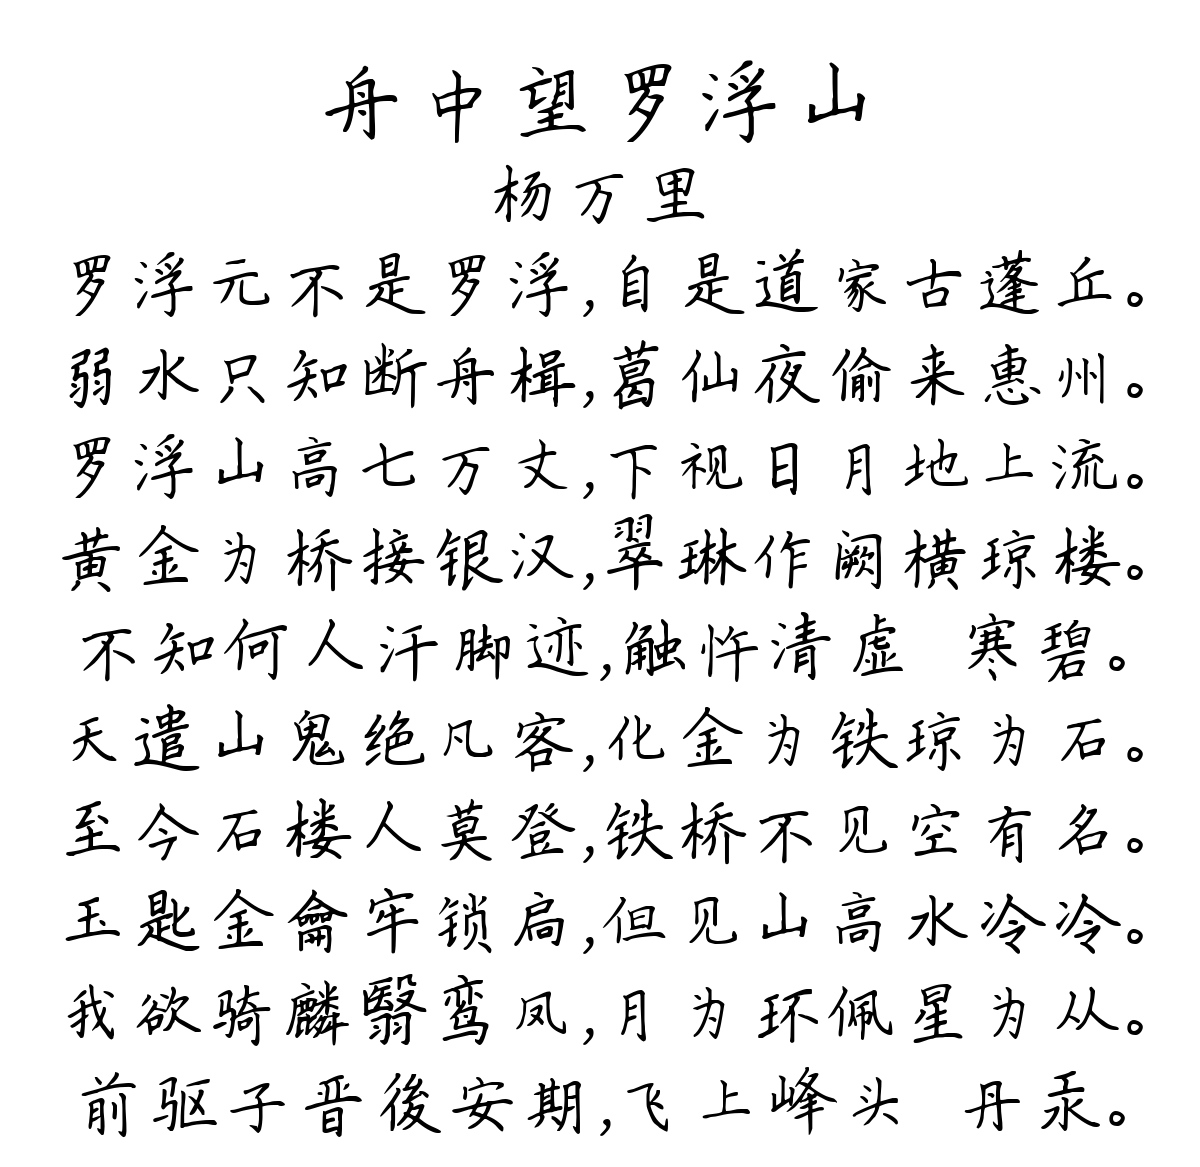 舟中望罗浮山
杨万里
罗浮元不是罗浮,自是道家古蓬丘。
弱水只知断舟楫,葛仙夜偷来惠州。
罗浮山高七万丈,下视日月地上流。
黄金为桥接银汉,翠琳作阙横琼楼。
不知何人汗脚迹,触忤清虚 寒碧。
天遣山鬼绝凡客,化金为铁琼为石。
至今石楼人莫登,铁桥不见空有名。
玉匙金龠牢锁扃,但见山高水冷冷。
我欲骑麟翳鸾凤,月为环佩星为从。
前驱子晋後安期,飞上峰头 丹汞。